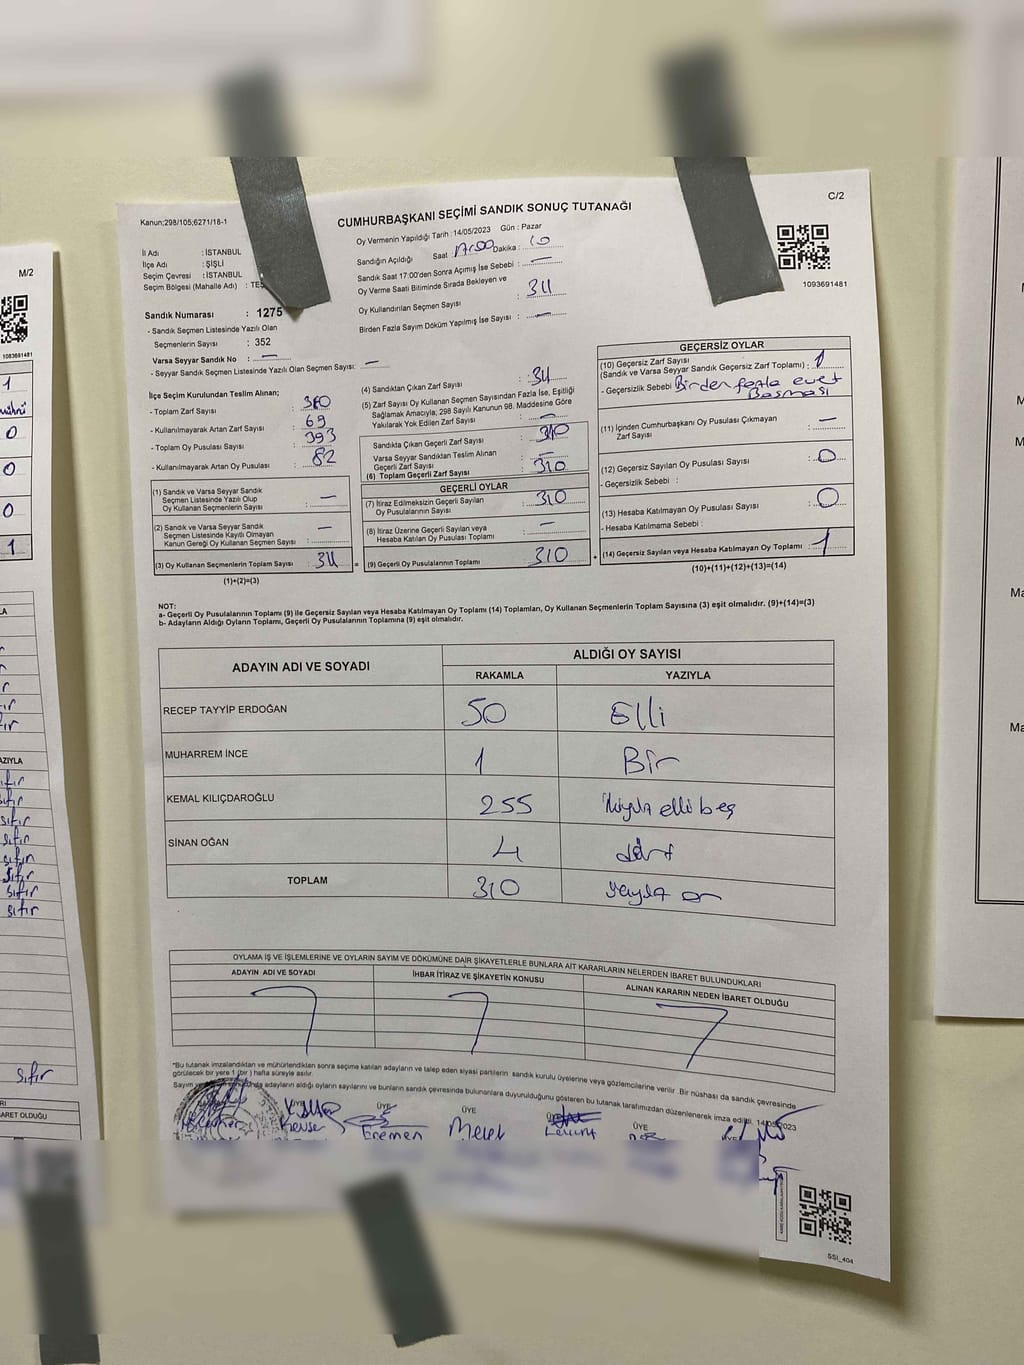 Kanun;298/105;6271/18-1
C/2
CUMHURBAŞKANI SEÇİMİ SANDIK SONUÇ TUTANAĞI
İl Adı : İSTANBUL
İlçe Adı : ŞİŞLİ
Seçim Çevresi : İSTANBUL
Seçim Bölgesi (Mahalle Adı) : TEŞ
Sandık Numarası : 1275
- Sandık Seçmen Listesinde Yazılı Olan
Seçmenlerin Sayısı : 352
Varsa Seyyar Sandık No : —
- Seyyar Sandık Seçmen Listesinde Yazılı Olan Seçmen Sayısı: —
Oy Vermenin Yapıldığı Tarih : 14/05/2023 Gün : Pazar
Sandığın Açıldığı Saat : 17:00 Dakika : 10
Sandık Saat 17:00'den Sonra Açımış İse Sebebi : —
Oy Verme Saati Bitiminde Sırada Bekleyen ve
Oy Kullandırılan Seçmen Sayısı : 311
Birden Fazla Sayım Döküm Yapılmış İse Sayısı : —
1093691481
İlçe Seçim Kurulundan Teslim Alınan;
- Toplam Zarf Sayısı : 380
- Kullanılmayarak Artan Zarf Sayısı : 69
- Toplam Oy Pusulası Sayısı : 393
- Kullanılmayarak Artan Oy Pusulası : 82
(1) Sandık ve Varsa Seyyar Sandık
Seçmen Listesinde Yazılı Olup
Oy Kullanan Seçmenlerin Sayısı : —
(2) Sandık ve Varsa Seyyar Sandık
Seçmen Listesinde Kayıtlı Olmayan
Kanun Gereği Oy Kullanan Seçmen Sayısı : —
(3) Oy Kullanan Seçmenlerin Toplam Sayısı : 311
(1)+(2)=(3)
(4) Sandıktan Çıkan Zarf Sayısı : 311
(5) Zarf Sayısı Oy Kullanan Seçmen Sayısından Fazla İse, Eşitliği
Sağlamak Amacıyla, 298 Sayılı Kanunun 98. Maddesine Göre
Yakılarak Yok Edilen Zarf Sayısı : —
Sandıkta Çıkan Geçerli Zarf Sayısı : 310
Varsa Seyyar Sandıktan Teslim Alınan
Geçerli Zarf Sayısı : —
(6) Toplam Geçerli Zarf Sayısı : 310
GEÇERLİ OYLAR
(7) İtiraz Edilmeksizin Geçerli Sayılan
Oy Pusulalarının Sayısı : 310
(8) İtiraz Üzerine Geçerli Sayılan veya
Hesaba Katılan Oy Pusulası Toplamı : —
(9) Geçerli Oy Pusulalarının Toplamı : 310
GEÇERSİZ OYLAR
(10) Geçersiz Zarf Sayısı
(Sandık ve Varsa Seyyar Sandık Geçersiz Zarf Toplamı) : 1
- Geçersizlik Sebebi : Birden fazla evet
Basması
(11) İçinden Cumhurbaşkanı Oy Pusulası Çıkmayan
Zarf Sayısı : —
(12) Geçersiz Sayılan Oy Pusulası Sayısı : 0
- Geçersizlik Sebebi :
(13) Hesaba Katılmayan Oy Pusulası Sayısı : 0
- Hesaba Katılmama Sebebi :
(14) Geçersiz Sayılan veya Hesaba Katılmayan Oy Toplamı : 1
(10)+(11)+(12)+(13)=(14)
NOT:
a- Geçerli Oy Pusulalarının Toplamı (9) ile Geçersiz Sayılan veya Hesaba Katılmayan Oy Toplamı (14) Toplamları, Oy Kullanan Seçmenlerin Toplam Sayısına (3) eşit olmalıdır. (9)+(14)=(3)
b- Adayların Aldığı Oyların Toplamı, Geçerli Oy Pusulalarının Toplamına (9) eşit olmalıdır.
ADAYIN ADI VE SOYADI ALDIĞI OY SAYISI
RAKAMLA YAZIYLA
RECEP TAYYİP ERDOĞAN 50 Elli
MUHARREM İNCE 1 Bir
KEMAL KILIÇDAROĞLU 255 ikiyüz elli beş
SİNAN OĞAN 4 dört
TOPLAM 310 on
OYLAMA İŞ VE İŞLEMLERİNE VE OYLARIN SAYIM VE DÖKÜMÜNE DAİR ŞİKAYETLERLE BUNLARA AİT KARARLARIN NELERDEN İBARET BULUNDUKLARI
ADAYIN ADI VE SOYADI İHBAR İTİRAZ VE ŞİKAYETİN KONUSU ALINAN KARARIN NEDEN İBARET OLDUĞU
*Bu tutanak imzalandıktan ve mühürlendikten sonra seçime katılan adayların ve talep eden siyasi partilerin sandık kurulu üyelerine veya gözlemcilerine verilir. Bir nüshası da sandık çevresinde
görülecek bir yere 1 (bir) hafta süreyle asılır.
adayların aldığı oyların sayılarını ve bunların sandık çevresinde bulunanlara duyurulduğunu gösteren bu tutanak tarafımızdan düzenlenerek imza edildi. 14/05/2023
ÜYE ÜYE ÜYE
Kevser Eremen Melek Levent
SSI_404
M/2
1093691481
1
0
0
0
1
YAZIYLA
sıfır
sıfır
sıfır
sıfır
sıfır
sıfır
sıfır
sıfır
sıfır
İBARET OLDUĞU